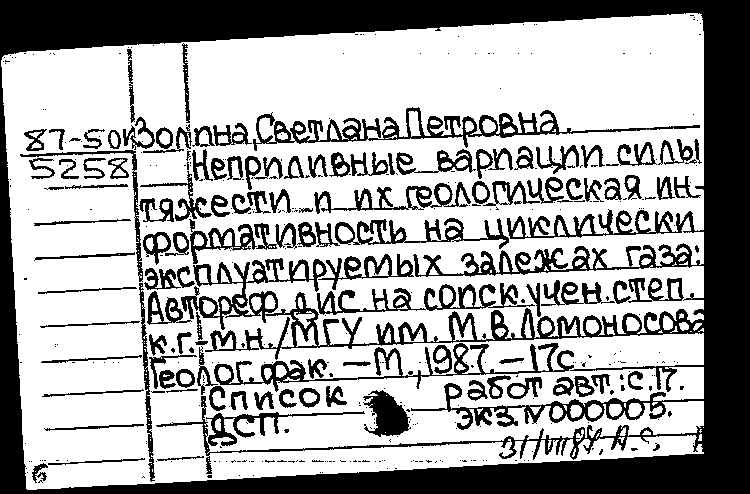 87-5 ОК Золина, Светлана Петровна.
5258 Неприливные вариации силы
тяжести и их геологическая ин-
формативность на циклически
эксплуатируемых залежах газа:
Автореф. дис. на соиск. учен. степ.
к.г.-м.н. /МГУ им. М.В. Ломоносова
Геолог. фак. — М., 1987. — 17с.
Список работ авт.: с. 17.
ДСП. экз. N 000005.
6